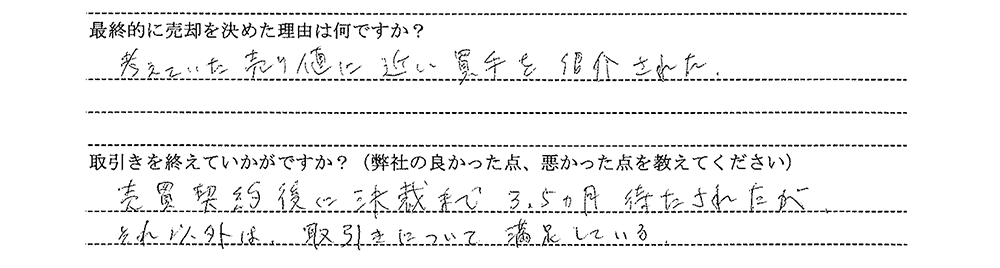 最終的に売却を決めた理由は何ですか？
考えていた売り値に近い買手を紹介された。
取引きを終えていかがですか？（弊社の良かった点、悪かった点を教えてください）
売買契約後に決裁まで3.5ヵ月待たされたが、
それ以外は、取引きについて満足している。